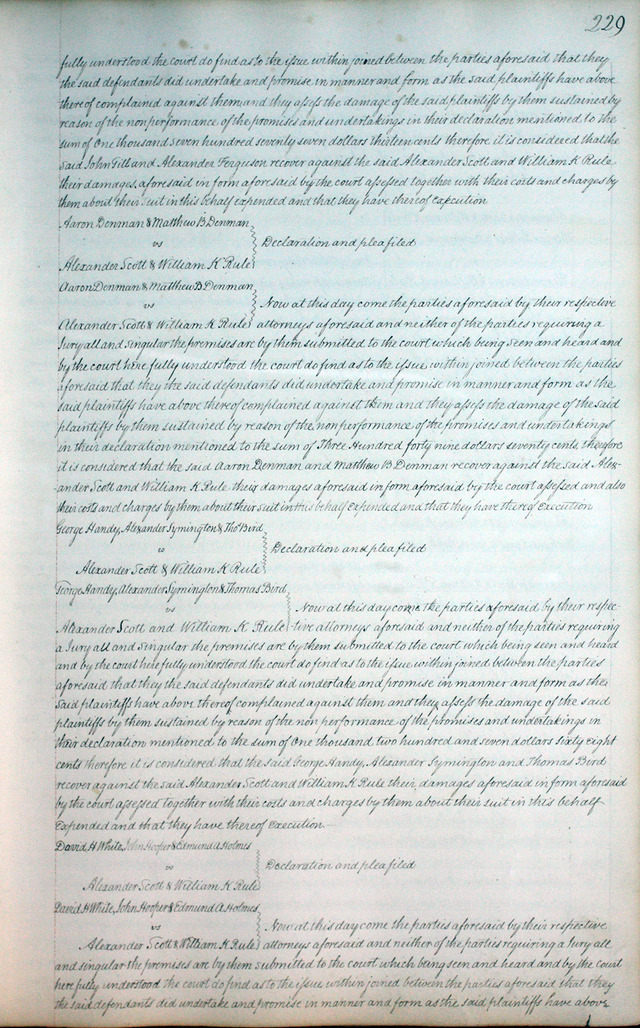 229
fully understood the court do find as to the issue within joined between the parties aforesaid that they
the said defendants did undertake and promise in manner and form as the said plaintiffs have above
thereof complained against them and they assess the damage of the said plaintiffs by them sustained by
reason of the nonperformance of the promises and undertakings in their declaration mentioned to the
sum of One thousand seven hundred seventy seven dollars thirteen cents therefore it is considered that the
said John Gill and Alexander Ferguson recover against the said Alexander Scott and William K Rule
their damages, aforesaid in form aforesaid by the court assessed together with their costs and charges by
them about their suit in this behalf expended and that they have thereof execution
Aaron Denman & Matthew B Denman
vs Declaration and plea filed
Alexander Scott & William K Rule
Aaron Denman & Matthew B Denman
vs Now at this day come the parties aforesaid by their respective
Alexander Scott & William K Rule attorneys aforesaid and neither of the parties requiring a
Jury all and singular the premises are by them submitted to the court which being seen and heard and
by the court here fully understood the court do find as to the issue within joined between the parties
aforesaid that they the said defendants did undertake and promise in manner and form as the
said plaintiffs have above thereof complained against them and they assess the damage of the said
plaintiffs by them sustained by reason of the nonperformance of the promises and undertakings
in their declaration mentioned to the sum of Three Hundred forty nine dollars seventy cents, therefore
it is considered that the said Aaron Denman and Matthew B Denman recover against the said Alex-
ander Scott and William K Rule their damages aforesaid in form aforesaid by the court assessed and also
their costs and charges by them about their suit in this behalf expended and that they have thereof Execution
George Handy, Alexander Symington & Tho Bird
vs Declaration and plea filed
Alexander Scott & William K Rule
George Handy, Alexander Symington & Thomas Bird
vs Now at this day come the parties aforesaid by their respec-
Alexander Scott and William K Rule -tive attorneys aforesaid and neither of the parties requiring
a Jury all and singular the premises are by them submitted to the court which being seen and heard
and by the court here fully understood the court do find as to the issue within joined between the parties
aforesaid that they the said defendants did undertake and promise in manner and form as the
said plaintiffs have above thereof complained against them and they assess the damage of the said
plaintiffs by them sustained by reason of the non performance of the promises and undertakings in
their declaration mentioned to the sum of One thousand two hundred and seven dollars Sixty eight
cents therefore it is considered that the said George Handy, Alexander Symington and Thomas Bird
recover against the said Alexander Scott and William K Rule their damages aforesaid in form aforesaid
by the court assessed together with their costs and charges by them about their suit in this behalf
Expended and that they have thereof Execution —
David H White, John Hooper & Edmund A Holmes
vs Declaration and plea filed
Alexander Scott & William K Rule
David H White, John Hooper & Edmund A Holmes
vs Now at this day come the parties aforesaid by their respective
Alexander Scott & William K Rule attorneys aforesaid and neither of the parties requiring a Jury all
and singular the premises are by them submitted to the court which being seen and heard and by the court
here fully understood the court do find as to the issue within joined between the parties aforesaid that they
the said defendants did undertake and promise in manner and form as the said plaintiffs have above